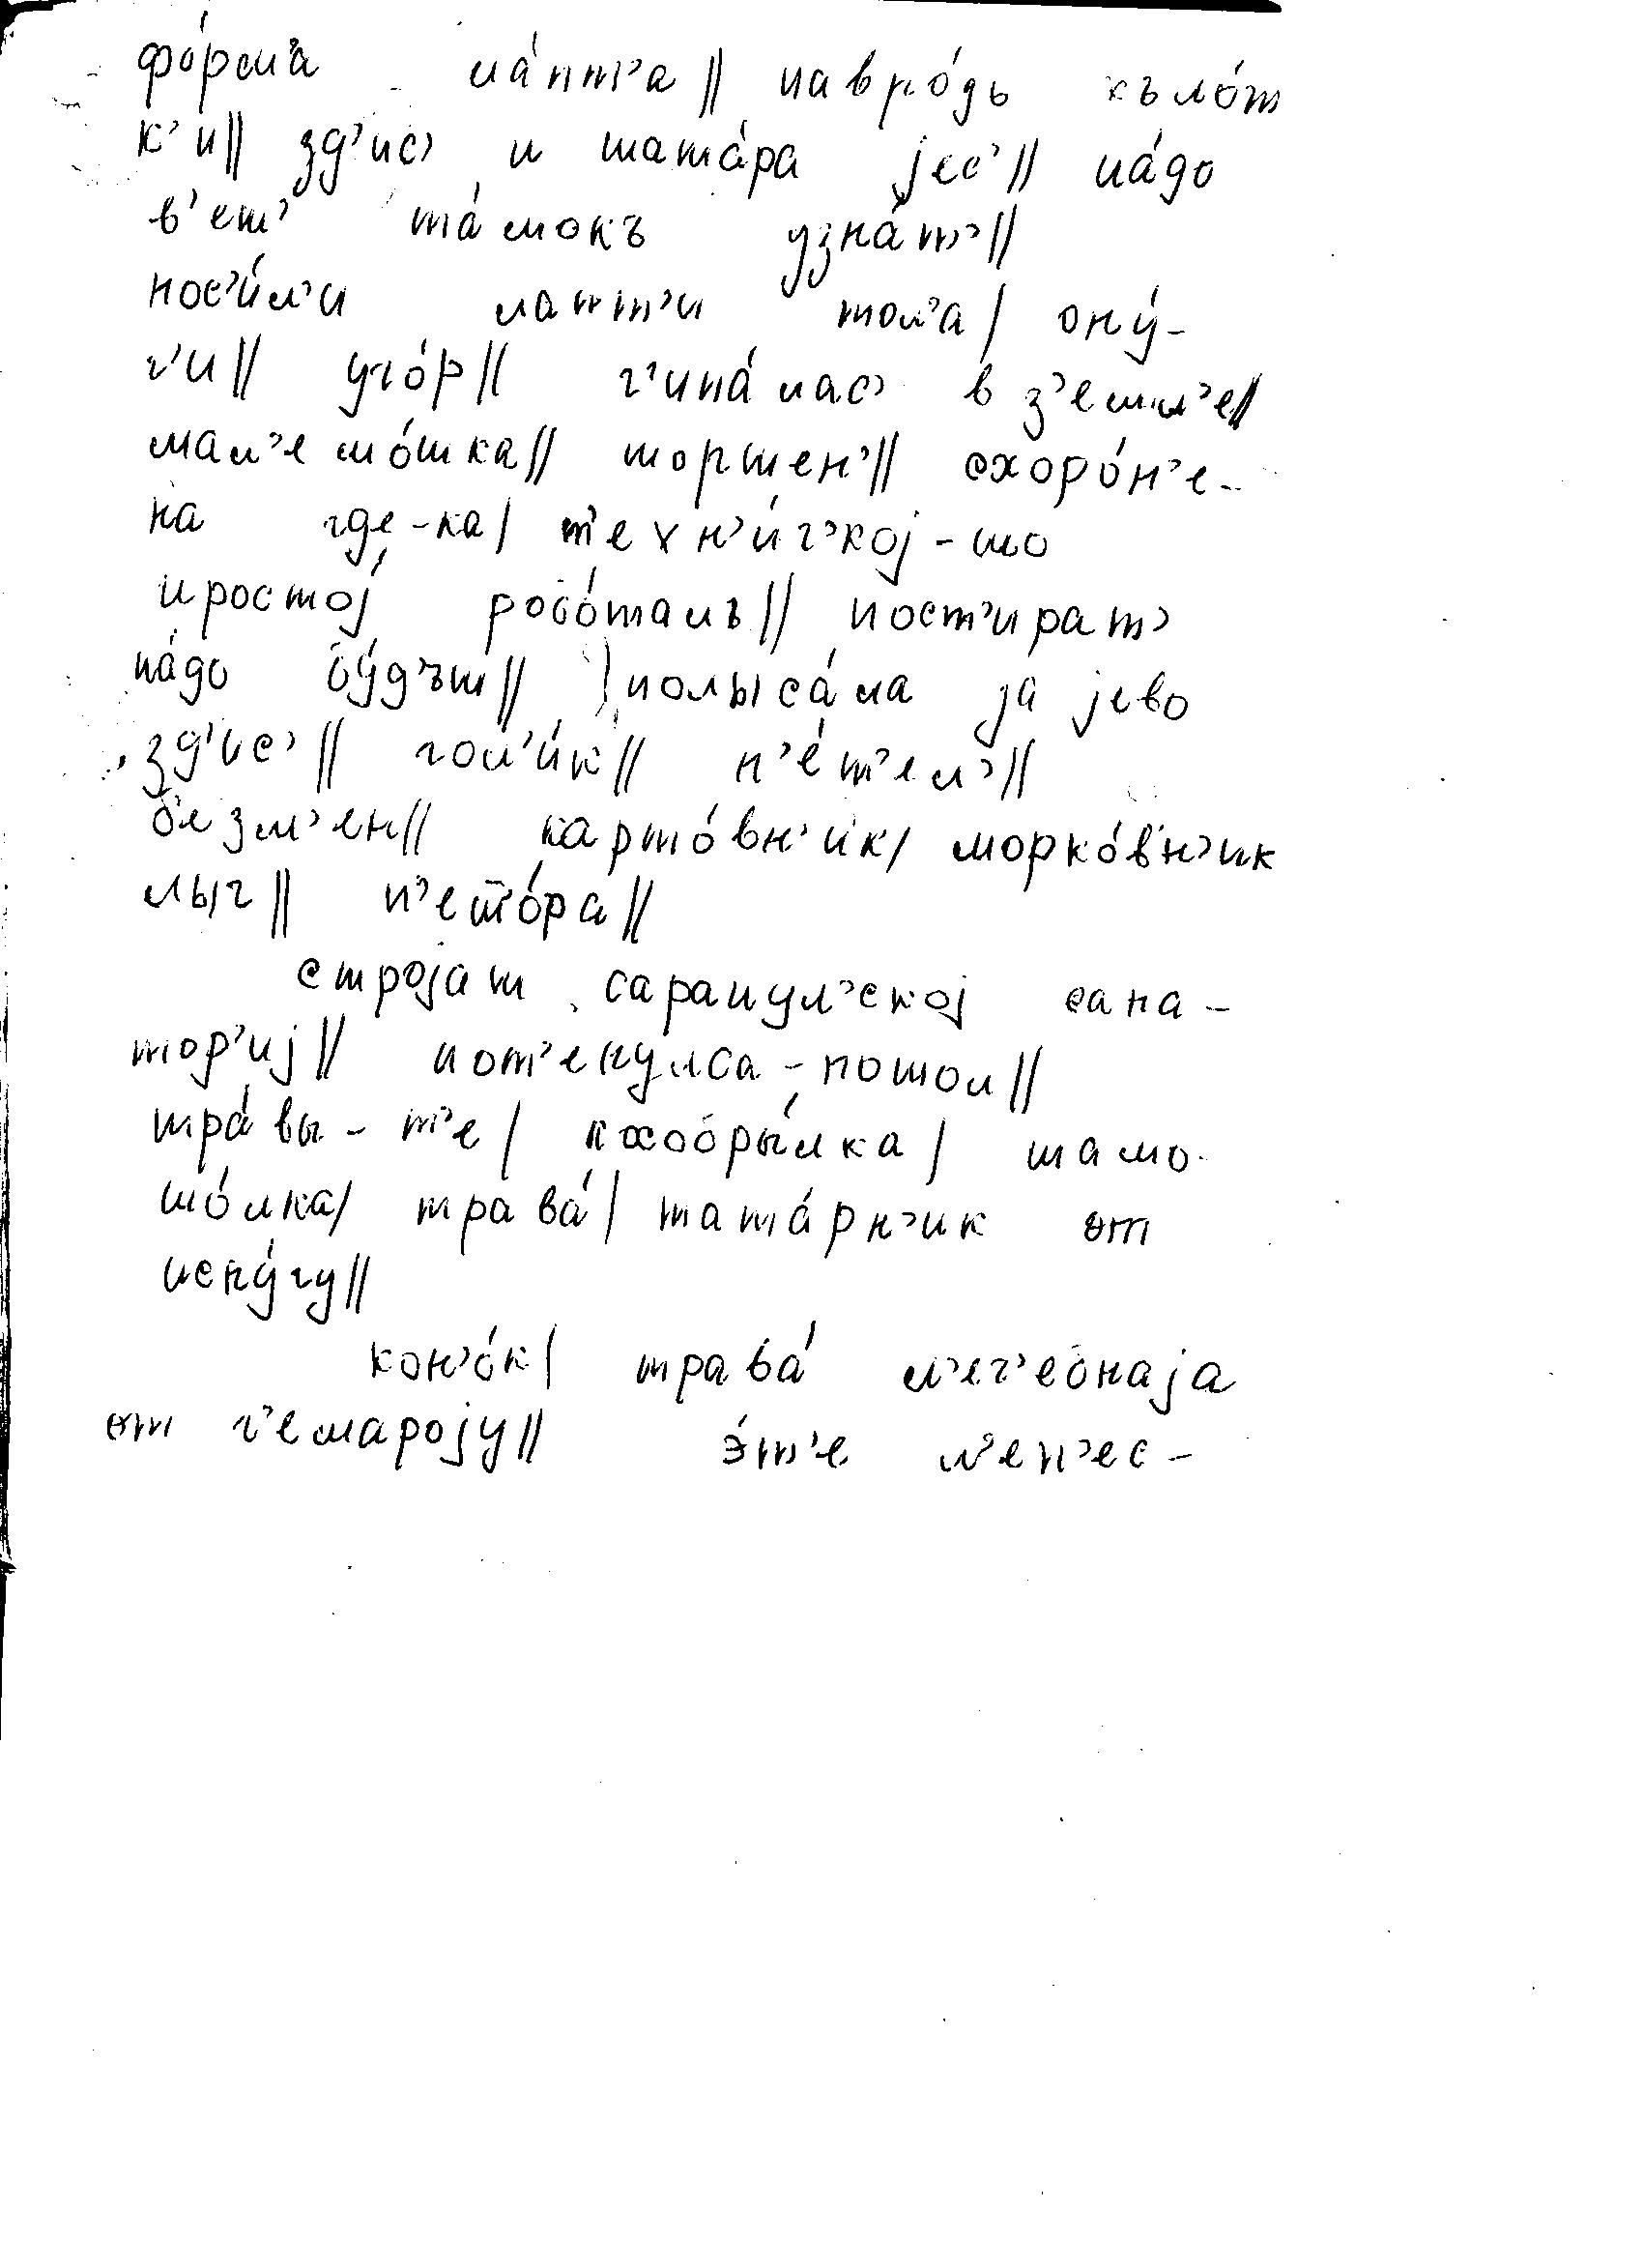 фо́рмъ ла́пт'а || навро́дь къло́т
к'и || зд'ис' и тата́ра јес' || на́до
в'ет' та́мокъ узна́т' ||
нос'и́л'и лапт'и тол'а | ону́-
г'и || уго́р || ч'ипа́лас' в з'емл'е ||
мал'ешо́шка || торшен' || схоро́н'е-
на где-ка | т'ехн'и́ч'кој-то
простој робо́талъ || пост'ират'
на́до бу́дът || полыса́ла за јево
зд'ис' || гол'и́к || п'е́т'ел' ||
безм'ен || карто́вн'ик | морко́вн'ик
лыч || п'есто́ра ||
стројат сарапул'ској сана-
тор'иј || пот'енулса - пошол ||
тра́вы-т'е | кхобры́лка | шамо
шо́лка | трава́ | тата́рн'ик от
испу́гу ||
кон'о́к | трава́ л'еч'ебнаја
от г'емароју || э́т'е л'еп'ес-